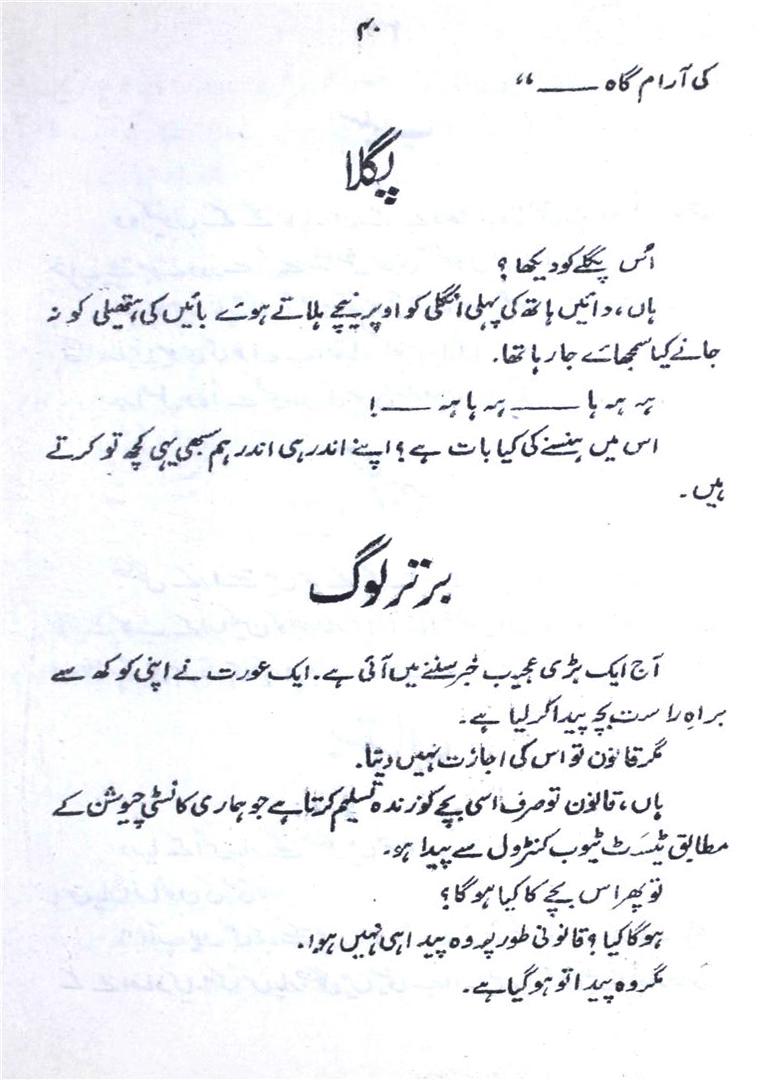 ۴۰
کی آرام گاہ ــــــ ‘‘
پگلا
اُس پگلے کو دیکھا ؟
ہاں، دائیں ہاتھ کی پہلی انگلی کو اوپر نیچے ہلاتے ہوئے بائیں کی ہتھیلی کو نہ
جانے کیا سمجھائے جا رہا تھا۔
ہہ ہہ ہا ــــــ ہہ ہا ہہ ــــــ !
اس میں ہنسنے کی کیا بات ہے ؟ اپنے اندر ہی اندر ہم سبھی یہی کچھ تو کرتے
ہیں۔
برتر لوگ
آج ایک بڑی عجیب خبر سننے میں آئی ہے۔ ایک عورت نے اپنی کوکھ سے
براہِ راست بچہ پیدا کر لیا ہے۔
مگر قانون تو اس کی اجازت نہیں دیتا۔
ہاں، قانون تو صرف اسی بچے کو زندہ تسلیم کرتا ہے جو ہماری کانسٹی چیوشن کے
مطابق ٹیسٹ ٹیوب کنٹرول سے پیدا ہو۔
تو پھر اس بچے کا کیا ہوگا ؟
ہوگا کیا ؟ قانونی طور پر وہ پیدا ہی نہیں ہوا۔
مگر وہ پیدا تو ہو گیا ہے۔